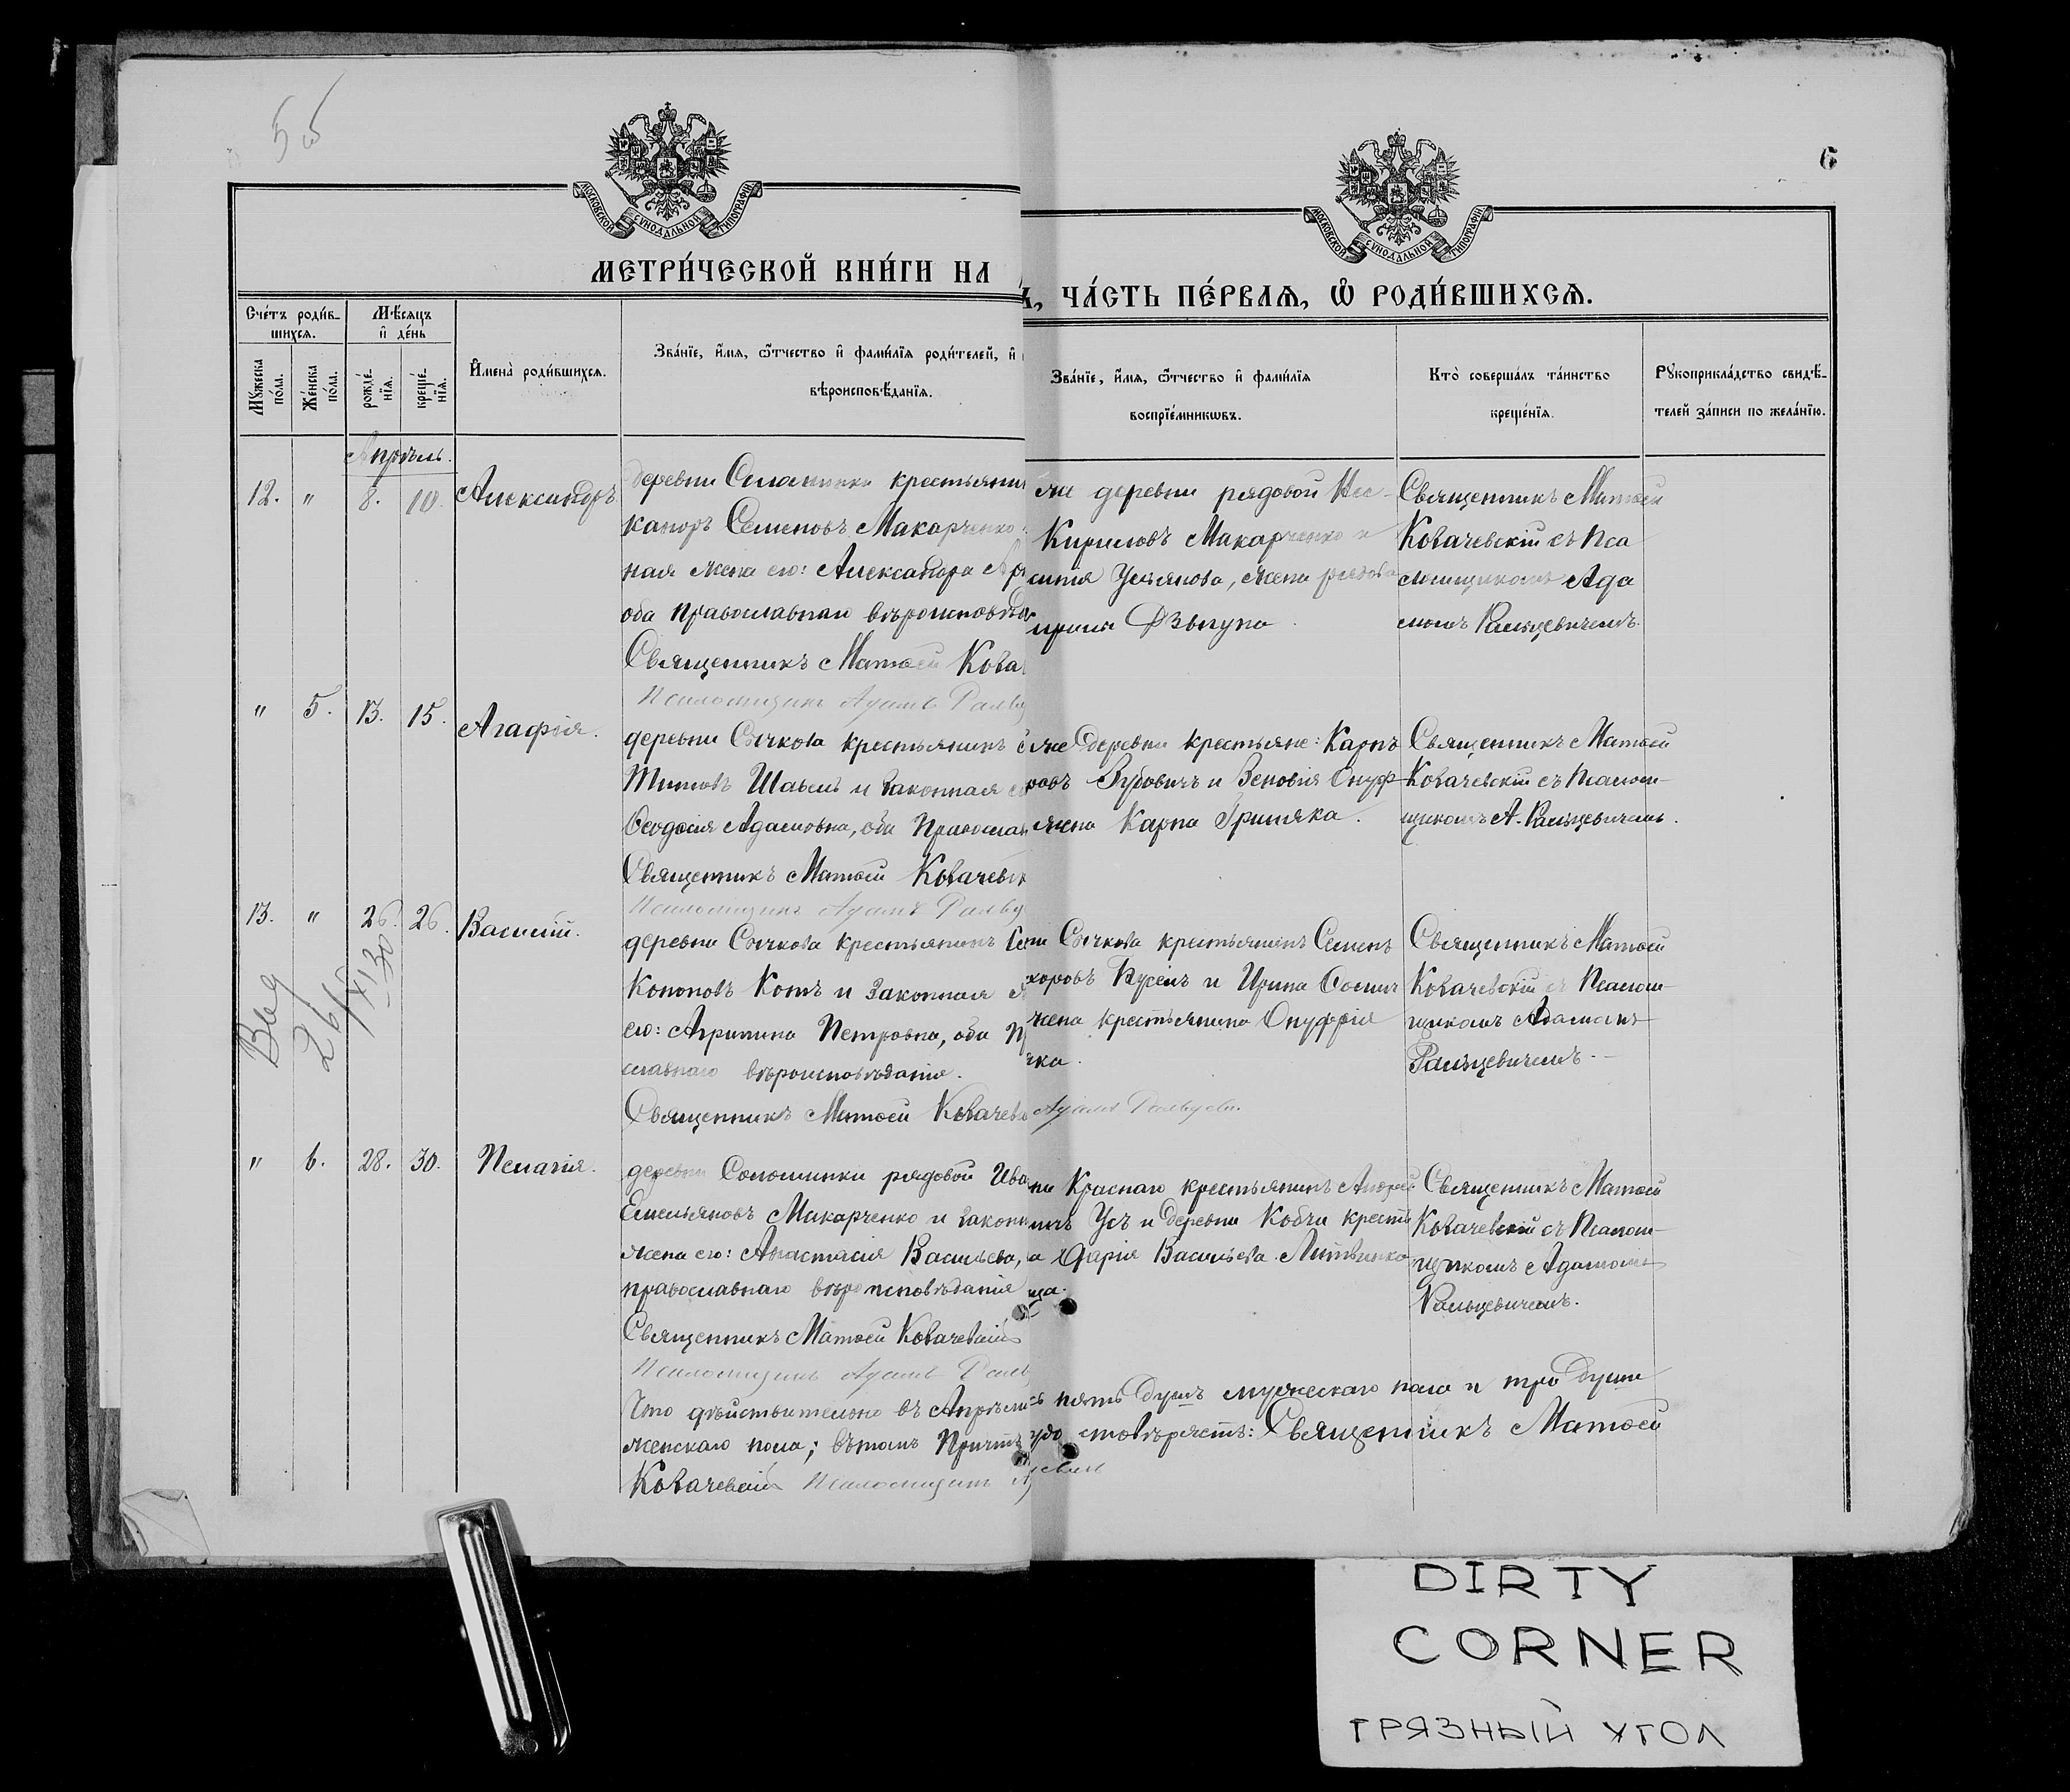 5 об
6
МОСКОВСКОЙ СѴНОДАЛЬНОЙ ТИПОГРАФІИ
МОСКОВСКОЙ СѴНОДАЛЬНОЙ ТИПОГРАФІИ
МЕТРИ́ЧЕСКОЙ КНИ́ГИ НА
, ЧА́СТЬ ПЕ́РВАѦ, Ѡ҆ РОДИ́ВШИХСѦ.
Сче́тъ роди́в-
шихсѧ.
Мѣ́сѧцъ
и҆ де́нь
Мꙋ́жеска по́ла.
Же́нска по́ла.
рожде́-нїѧ.
креще́-нїѧ.
И҆мена̀ роди́вшихсѧ.
Зва́нїе, и҆́мѧ, ѻ҆́тчество и҆ фами́лїѧ роди́телей, и҆
вѣроисповѣ́данїѧ.
Зва́нїе, и҆́мѧ, ѻ҆́тчество и҆ фами́лїѧ
воспрїе́мникѡвъ.
Кто̀ соверша́лъ та́инство
креще́нїѧ.
Рꙋкоприкла́дство свидѣ́-
телей за́писи по жела́нїю.
Апрѣль.
12. " 8. 10. Александръ
деревни крестьянин
каноръ Семеновъ Макарченко
ная жена его: Александра
оба православнаго вѣроисповѣда
Священникъ Матѳей Кова
Псаломщикъ Адамъ
же деревни рядовой
Кириловъ Макарченко и
Устинова, жена рядова
Священникъ Матѳей
Ковачевскій съ Пса
ломщикомъ Ада
момъ Рамѣцевичемъ.
" 5. 13. 15. Агафія.
деревни Сычкова крестьянинъ
Титовъ и законная
Ѳеодосія Адамовна, оба Православ
Священникъ Матѳей Ковачевск
Псаломщикъ Адамъ
же деревни крестьяне: Карпъ
ровъ Зубовичъ и Зеновія Онуф
жена Карпа Гришяка.
Священникъ Матѳей
Ковачевскій съ Псалом-
щикомъ А. Рамѣцевичемъ.
13. " 26. 26. Василій.
Выд
26/XI 30
деревни Сычкова крестьянинъ
Кононовъ Котъ и законная
его: Агрипина Петровна, оба П
славнаго вѣроисповѣданія.
Священникъ Матѳей Ковачевс
ни Сычкова крестьянинъ Семенъ
хоровъ Буселъ и Ирина
жена крестьянина Онуфрія
яка.
Адамъ
Священникъ Матѳей
Ковачевскій съ Псалом-
щикомъ Адамомъ
Рамѣцевичемъ.
" 6. 28. 30. Пелагія.
деревни Соломинки рядовой Ива
Емельяновъ Макарченко и закон
жена его: Анастасія Васильева,
православнаго вѣроисповѣданія
Священникъ Матѳей Ковачевскій
Псаломщикъ Адамъ
ни Краснаго крестьянинъ Андрей
Усъ и деревни Кобчи кресть
Дарія Васильева Литвинко
ца.
Священникъ Матѳей
Ковачевскій съ Псалом-
щикомъ Адамомъ
Рамѣцевичемъ.
Что дѣйствительно въ Апрѣлѣ
пять душъ мужескаго пола и три души
женскаго пола; въ томъ Причтъ
удостовѣряетъ: Священникъ Матѳей
Ковачевскій Псаломщикъ
DIRTY
CORNER
ГРЯЗНЫЙ УГОЛ